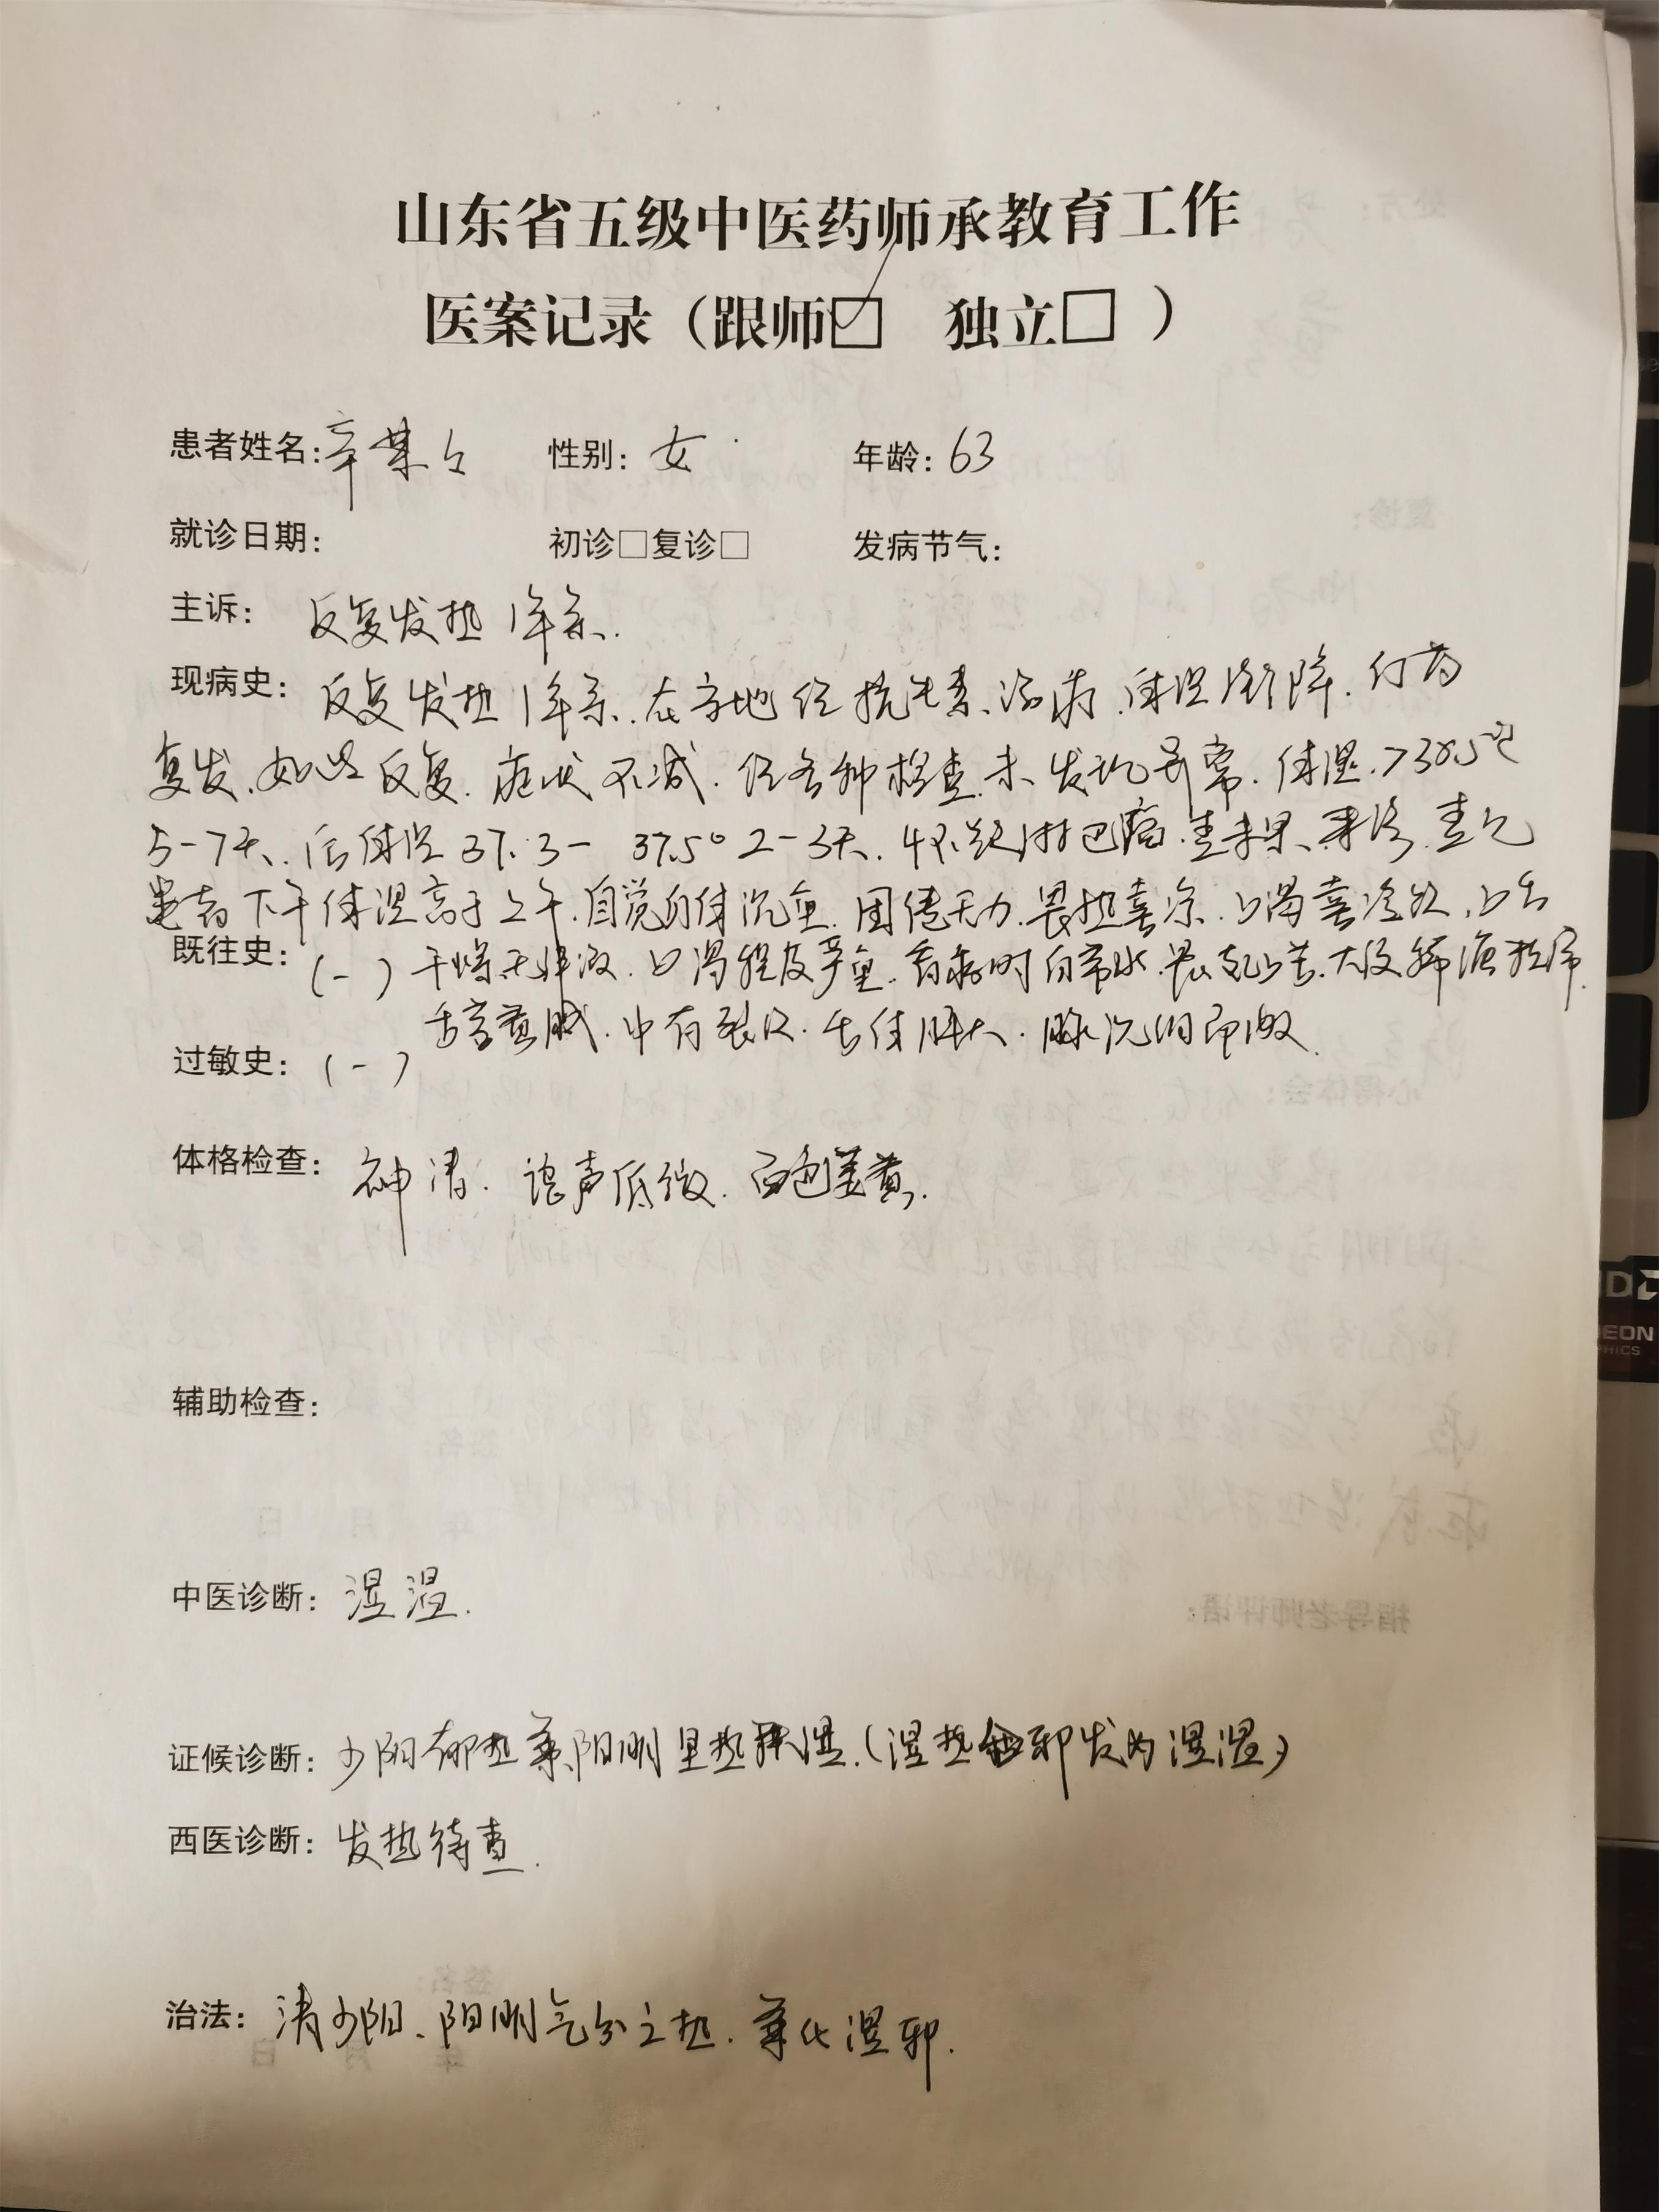 山东省五级中医药师承教育工作
医案记录（跟师☑ 独立□ ）
患者姓名：辛某々 性别：女 年龄：63
就诊日期： 初诊□复诊□ 发病节气：
主诉： 反复发热1年余.
现病史： 反复发热1年余.在当地经抗生素治疗.体温渐降.停药
复发.如此反复.症状不减.经各种检查.未发现异常.体温>38.5℃
5-7天.后体温37.3- 37.5° 2-3天.怀疑淋巴瘤.查未果.来诊.查见
患者下午体温高于上午.自觉身体沉重.困倦无力.畏热喜凉.口渴喜冷饮.口舌
既往史：(-) 干燥无津液.口渴程度严重.看病时自带水.晨起口苦.大便稀溏
舌苔黄腻.中有裂纹.舌体胖大.脉沉细即微.
过敏史：(-)
体格检查： 神清.语声低微.面色萎黄.
辅助检查：
中医诊断： 湿温.
证候诊断：少阳郁热兼阳明里热挟湿.(湿热邪发为湿温)
西医诊断：发热待查.
治法：清少阳、阳明气分之热.兼化湿邪.
处方：
复诊：
心得体会：
签名：
年 月 日
指导老师评语：
签名：
年 月 日